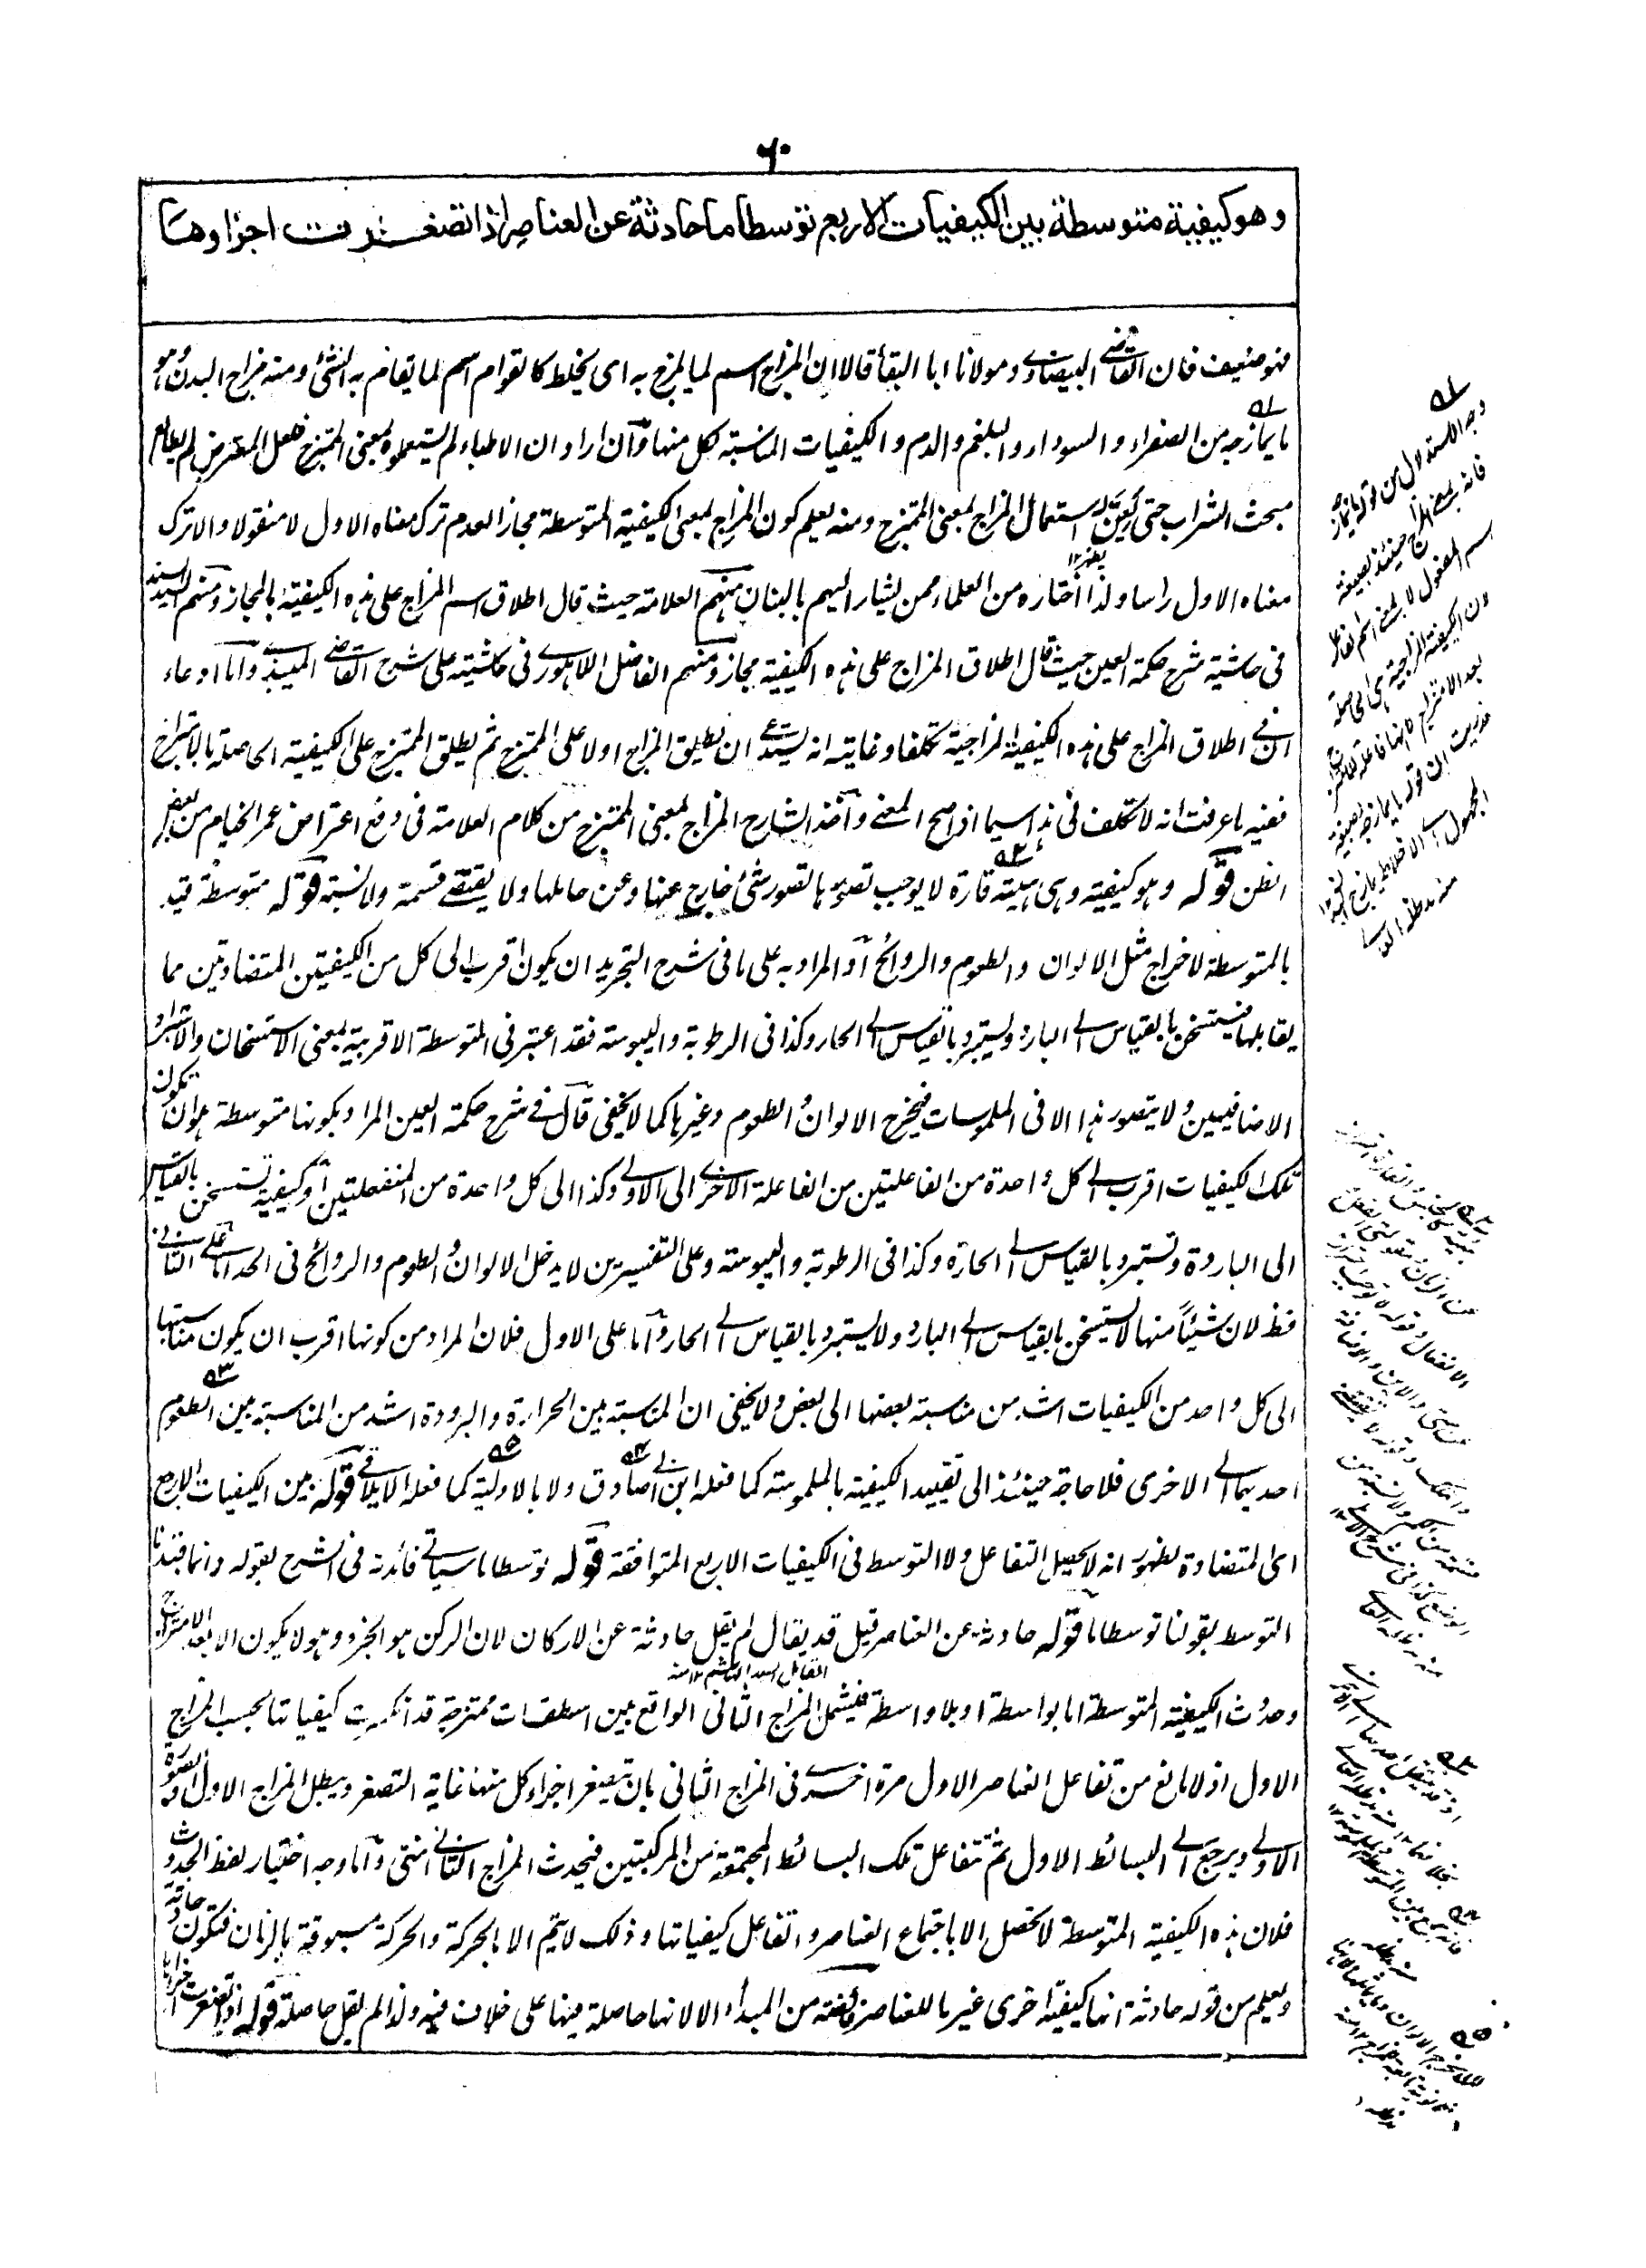 ٦٠
وهو كيفية متوسطة بين الكيفيات الاربع توسطا ما حادثة عن العناصر اذا تصغرت اجزاوها
فهو ضعيف فان القاضي البيضاوي ومولانا ابا البقأ قالا ان المزاج اسم لما يمزج به اى يخلط كالقوام اسم لما يقام به الشئ ومنه مزاج البدن وهو
ما يمازجه من الصفراء والسوداء والبلغم والدم والكيفيات المناسبة لكل منها وان اراد ان الاطباء لم يستعملوه بمعنى الممتزج فلعل المعترض لم يطالع
مبحث الشراب حتى يتعين له استعمال المزاج بمعنى الممتزج ومنه يعلم كون المزاج بمعنى الكيفية المتوسطة مجازا لعدم ترك معناه الاول لا منقولا والا ترك
معناه الاول راسا ولذا اختاره من العلماء ممن يشار اليهم بالبنان منهم العلامة حيث قال اطلاق اسم المزاج على هذه الكيفية بالمجاز ومنهم السيد السند
فى حاشية شرح حكمة العين حيث قال اطلاق المزاج على هذه الكيفية مجاز ومنهم الفاضل اللاهوري فى حاشيته على شرح القاضي الميبذي واما ادعاء
ان في اطلاق المزاج على هذه الكيفية المزاجية تكلفا وغايته انه يستدعي ان يطلق المزاج اولا على الممتزج ثم يطلق الممتزج على الكيفية الحاصلة بالامتزاج
ففيه ما عرفت انه لا تكلف فى هذا سيما اذا صح المعنى واخذ الشارح المزاج بمعنى الممتزج من كلام العلامة فى دفع اعتراض عمر الخيام من بعض
الظن قوله وهو كيفية وهى هيئة قارة لا يوجب تصورها تصور شئ خارج عنها وعن حاملها ولا يقتضي قسمة ولا نسبة قوله متوسطة قيد
بالمتوسطة لاخراج مثل الالوان والطعوم والروائح اذ المراد به على ما فى شرح التجريد ان يكون اقرب الى كل من الكيفيتين المتضادتين مما
يقابلها فيستسخن بالقياس الى البارد ويستبرد بالقياس الى الحار وكذا فى الرطوبة واليبوسة فقد اعتبر في المتوسطة الاقربية بمعنى الاستسخان والاستبراد
الاضافيين ولا يتصور هذا الا فى الملموسات فيخرج الالوان والطعوم وغيرها كما لا يخفى قال في شرح حكمة العين المراد بكونها متوسطة هو ان يكون
تلك الكيفيات اقرب الى كل واحدة من الفاعلتين من الفاعلة الاخرى الى الاولى وكذا الى كل واحدة من المنفعلتين او كيفية تستسخن بالقياس
الى الباردة وتستبرد بالقياس الى الحارة وكذا فى الرطوبة واليبوسة وعلى التفسيرين لا يدخل الالوان والطعوم والروائح فى الحد اما على الثاني
فظ لان شيئاً منها لا يستسخن بالقياس الى البارد ولا يستبرد بالقياس الى الحار واما على الاول فلان المراد من كونها اقرب ان يكون مناسبتها
الى كل واحد من الكيفيات اشد من مناسبة بعضها الى بعض ولا يخفى ان المناسبة بين الحرارة والبرودة اشد من المناسبة بين الطعوم
احديهما الى الاخرى فلا حاجة حينئذ الى تقييد الكيفية بالملموسة كما فعله ابن ابي صادق ولا بالاولية كما فعله الايلاقي قوله بين الكيفيات الاربع
اى المتضادة لظهور انه لا يحصل التفاعل ولا التوسط فى الكيفيات الاربع المتوافقة قوله توسطا ما سياتي فائدته فى الشرح بقوله وانما قيدنا
التوسط بقولنا توسطا ما قوله حادثة عن العناصر قيل قد يقال لم يقل حادثة عن الاركان لان الركن هو الجزء وهو لا يكون الا بعد الامتزاج
وحدوث الكيفية المتوسطة اما بواسطة او بلا واسطة فيشمل المزاج الثانى الواقع بين اسطقسات ممتزجة قد انكسرت كيفياتها بحسب المزاج
الاول اذ لا مانع من تفاعل العناصر الاول مرة اخرى فى المزاج الثانى بان يتصغر اجزاء كل منها غاية التصغر ويبطل المزاج الاول والصورة
الاولى ويرجع الى البسائط الاول ثم تتفاعل تلك البسائط المجتمعة من المركبتين فيحدث المزاج الثاني انتهى واما وجه اختيار لفظ الحدوث
فلان هذه الكيفية المتوسطة لا تحصل الا باجتماع العناصر وتفاعل كيفياتها وذلك لا يتم الا بالحركة والحركة مسبوقة بالزمان فتكون حادثة
ويعلم من قوله حادثة انها كيفية اخرى غير ما للعناصر فائضة من المبدأ لا انها حاصلة منها على خلاف فيه ولذا لم يقل حاصلة قوله اذا تصغرت اجزاؤها
وجه الاستدلال من قوله ما يمازجه
فانه بمعنى المزاج حينئذ بصيغة
اسم المفعول لا بمعنى اسم الفاعل
لان الكيفية المزاجية هى الحاصلة
بعد الامتزاج